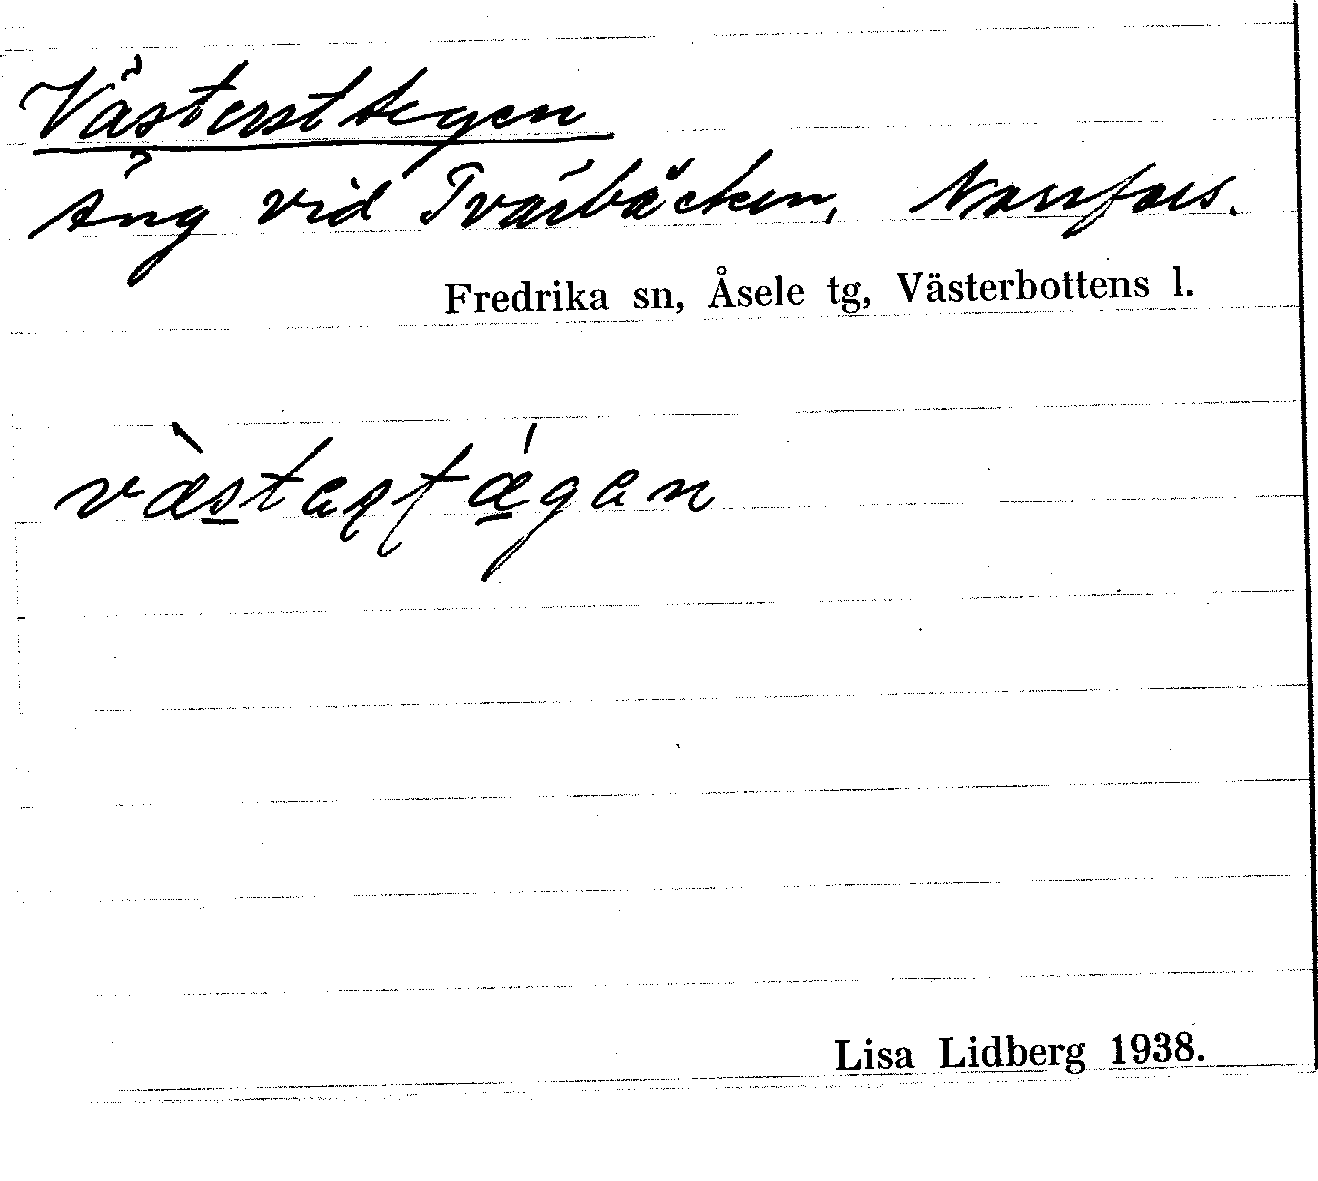 Västersttegen
Äng vid Tvärbäcken, Norrfors.
Fredrika sn, Åsele tg, Västerbottens l.
Lisa Lidberg 1938.